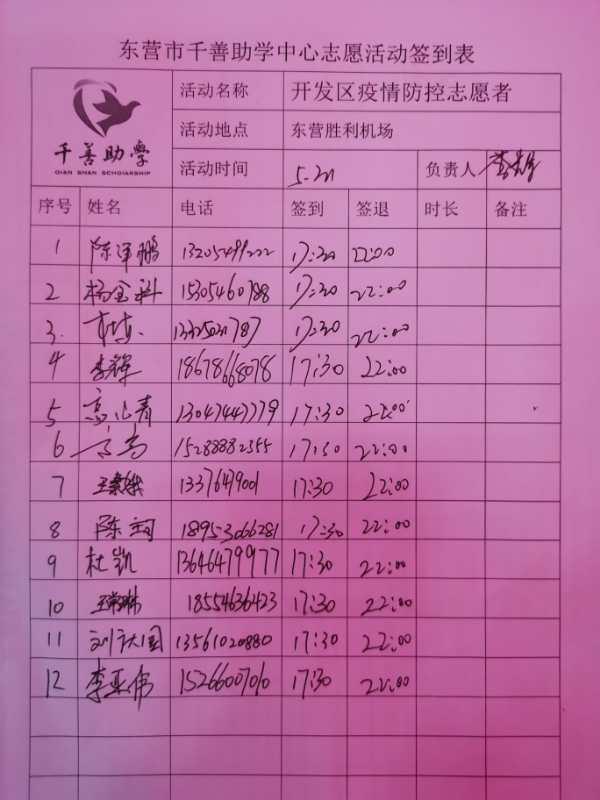 东营市千善助学中心志愿活动签到表
千善助学
QIAN SHAN SCHOLARSHIP
活动名称 开发区疫情防控志愿者
活动地点 东营胜利机场
活动时间 5.21 负责人
序号 姓名 电话 签到 签退 时长 备注
1 陈泽鹏 13205499222 17:30 22:00
2 杨金科 15305460788 17:30 22:00
3. 17:30 22:00
4 李辉 18678668078 17:30 22:00
5 13047447779 17:30 22:00
6 15288882355 17:30 22:00
7 13376479001 17:30 22:00
8 18953066281 17:30 22:00
9 杜凯 13646479977 17:30 22:00
10 18554636423 17:30 22:00
11 13561020880 17:30 22:00
12 李亚伟 15266007010 17:30 22:00